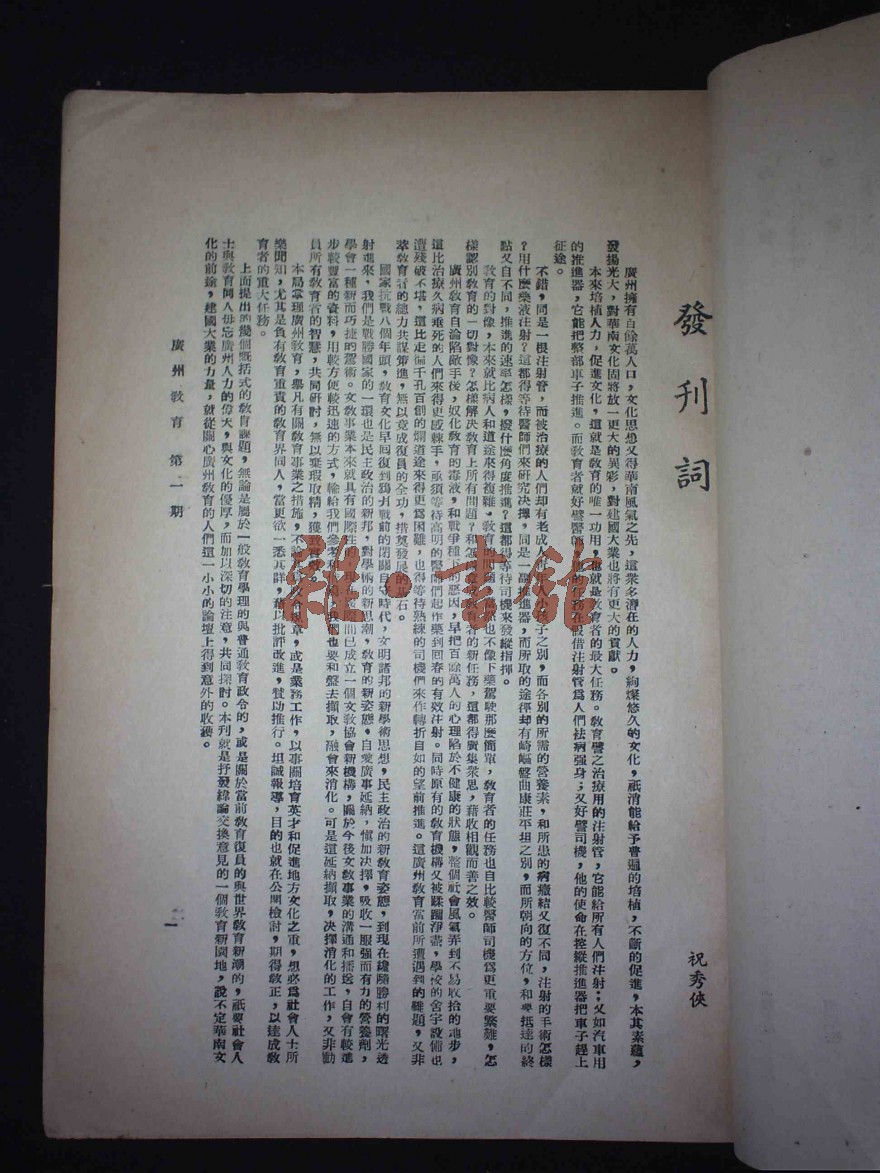 發刊詞
祝秀俠
廣州擁有百餘萬人口，文化思想又得華南風氣之先，這衆多潛在的人力，絢燦悠久的文化，祇消能給予普遍的培植，不斷的促進，本其素蘊，
發揚光大，對華南文化固將放一更大的異彩，對建國大業也將有更大的貢獻。
本來培植人力，促進文化，這就是教育的唯一功用，也就是教育者的最大任務。教育譬之治療用的注射管，它能給所有人們注射；又如汽車用
的推進器，它能把整部車子推進。而教育者就好譬醫師，他的任務在假借注射管為人們祛病强身；又好譬司機，他的使命在控縱推進器把車子趕上
征途。
不錯，同是一根注射管，而被治療的人們却有老成人青年人小孩子之別，而各別的所需的營養素，和所患的病癥結又復不同，注射的手術怎樣
？用什麼藥液注射？這都得等待醫師們來研究决擇，同是一副推進器，而所取的途徑却有崎嶇盤曲康莊平坦之別，而所朝向的方位，和要抵達的終
點又自不同，推進的速率怎樣，撥什麼角度推進？這都得等待司機來發縱指揮。
教育的對像，本來就比病人和道途來得複雜，教育的問題，當然也不像下藥駕駛那麼簡單，教育者的任務也自比較醫師司機爲更重要繁難，怎
樣認別教育的一切對像？怎樣解决教育上所有問題？和怎樣 教育者的新任務，這都得廣集衆思，藉收相觀而善之效。
廣州教育自淪陷敵手後，奴化教育的毒液，和戰爭種下的惡因，早把百餘萬人的心理陷於不健康的狀態，整個社會風氣弄到不易收拾的地步，
這比治療久病垂死的人們來得更感棘手，亟須等待高明的醫師們起作藥到回春的有效注射。同時原有的教育機構又被蹂躪淨盡，學校的舍宇設備也
遭殘破不堪，這比走徧千孔百創的爛道途來得更爲困難，也得等待熟練的司機們來作轉折自如的望前推進。這廣州教育當前所遭遇到的難題，又非
萃教育者的總力共謀策進，無以竟成復員的全功，措奠發展的基石。
國家抗戰八個年頭，教育文化早回復到鴉片戰前的閉關自守時代，文明諸邦的新學術思想，民主政治的新教育姿態，到現在纔隨勝利的曙光透
射進來，我們是戰勝國家的一環也是民主政治的新邦，對學術的新思潮，教育的新姿態，自愛廣事延納，愼加决擇，吸收一服强而有力的營養劑，
學會一種新而巧捷的駕術。文教事業本來就具有國際性的，現在國際間已成立一個文教協會新機構，關於今後文教事業的溝通和播送，自會有較進
步較豐富的資料，用較方便較迅速的方式，輸給我們參考和 ，我們也要和盤去擷取，融會來消化。可是這延納擷取，决擇消化的工作，又非勤
員所有教育者的智慧，共同研討，無以棄瑕取精，獲致實效。
本局掌理廣州教育，舉凡有關教育事業之措施，不論是 規章，或是業務工作，以事關培育英才和促進地方文化之重，想必爲社會人士所
樂聞知，尤其是負有教育重責的教育界同人，當更欲一悉其詳，藉以批評改進，贊助推行。坦誠報導，目的也就在公開檢討，期得教正，以達成教
育者的重大任務。
上面提出的幾個概括式的教育課題，無論是屬於一般教育學理的與普通教育政令的，或是關於當前教育復員的與世界教育新潮的，祇要社會人
士與教育同人毋忘廣州人力的偉大，與文化的優厚，而加以深切的注意，共同探討。本刊就是抒發緯論交換意見的一個教育新園地，說不定華南文
化的前途，建國大業的力量，就從關心廣州教育的人們這一小小的論壇上得到意外的收穫。
廣州教育 第一期
雜·書館